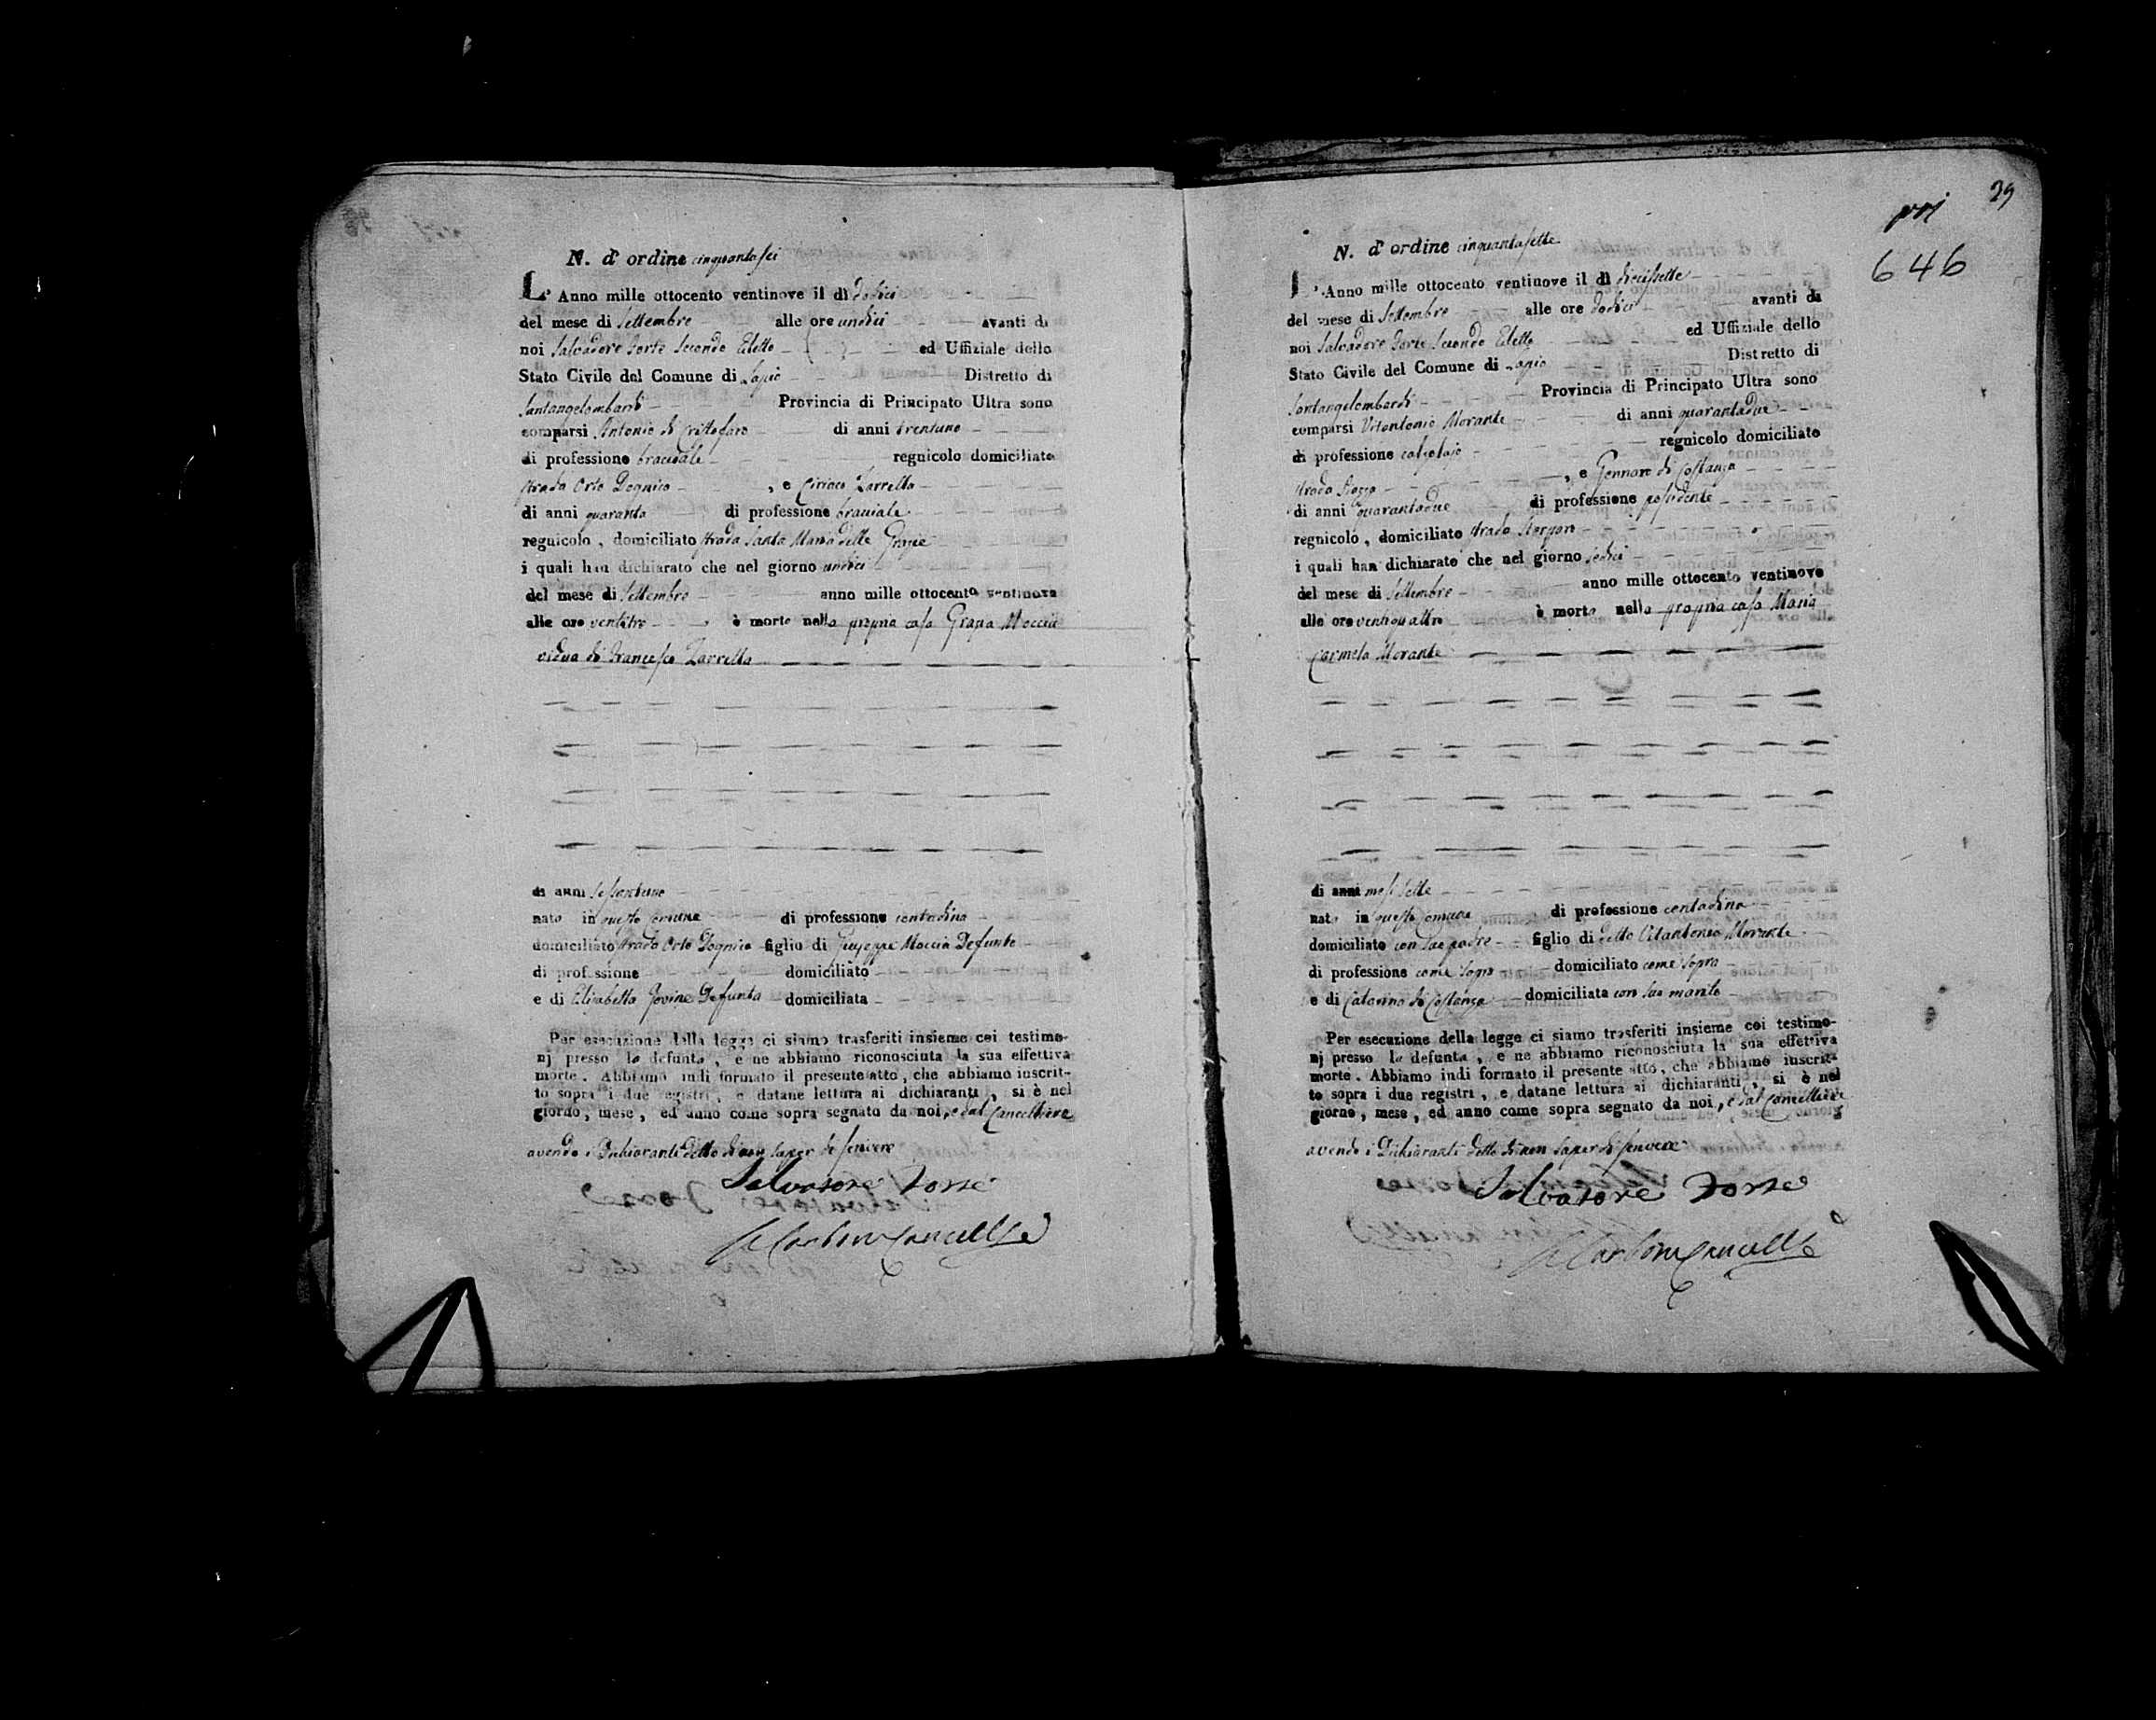 N. d' ordine cinquantasei
L' Anno mille ottocento ventinove il dì dodici
del mese di Settembre alle ore undici avanti di
noi Salvadore Forte Secondo Eletto ed Uffiziale dello
Stato Civile del Comune di Lapio Distretto di
Santangelombardi Provincia di Principato Ultra sono
comparsi Antonio di Cristofaro di anni trentuno
di professione bracciale regnicolo domiciliato
strada Orto Dognico , e Ciriaco Zarrella
di anni quaranta di professione bracciale
regnicolo , domiciliato strada Santa Maria delle Grazie
i quali han dichiarato che nel giorno undici
del mese di Settembre anno mille ottocento ventinove
alle ore ventitre è morta nella propria casa Grazia Moccia
vidua di Francesco Zarrella
di anni sessantuno
nato in questo comune di professione contadina
domiciliato strada Orto Dognico figlio di Giuseppe Moccia Defunto
di professione domiciliato
e di Elisabetta Jovine Defunta domiciliata
Per esecuzione della legge ci siamo trasferiti insieme coi testimo-
nj presso la defunta , e ne abbiamo riconosciuta la sua effettiva
morte . Abbiamo indi formato il presente atto , che abbiamo inscrit-
to sopra i due registri , e datane lettura ai dichiaranti , si è nel
giorno , mese , ed anno come sopra segnato da noi , e dal Cancelliere
avendo i Dichiaranti detto di non saper di scrivere
Salvatore Forte
39
646
N. d' ordine cinquantasette
L' Anno mille ottocento ventinove il dì diecissette
del mese di Settembre alle ore dodici avanti di
noi Salvadore Forte Secondo Eletto ed Uffiziale dello
Stato Civile del Comune di Lapio Distretto di
Santangelombardi Provincia di Principato Ultra sono
comparsi Vitantonio Morante di anni quarantadue
di professione calzolajo regnicolo domiciliato
strada , e Gennaro di Costanzo
di anni quarantadue di professione possidente
regnicolo , domiciliato strada
i quali han dichiarato che nel giorno sedici
del mese di Settembre anno mille ottocento ventinove
alle ore ventiquattro è morta nella propria casa Maria
Carmela Morante
di anni mesi sette
nato in questo comune di professione contadina
domiciliato con suo padre figlio di detto Vitantonio Morante
di professione come sopra domiciliato come sopra
e di Catarina di Costanzo domiciliata con suo marito
Per esecuzione della legge ci siamo trasferiti insieme coi testimo-
nj presso la defunta , e ne abbiamo riconosciuta la sua effettiva
morte . Abbiamo indi formato il presente atto , che abbiamo inscrit-
to sopra i due registri , e datane lettura ai dichiaranti , si è nel
giorno , mese , ed anno come sopra segnato da noi , e dal Cancelliere
avendo i Dichiaranti detto di non saper di scrivere
Salvatore Forte